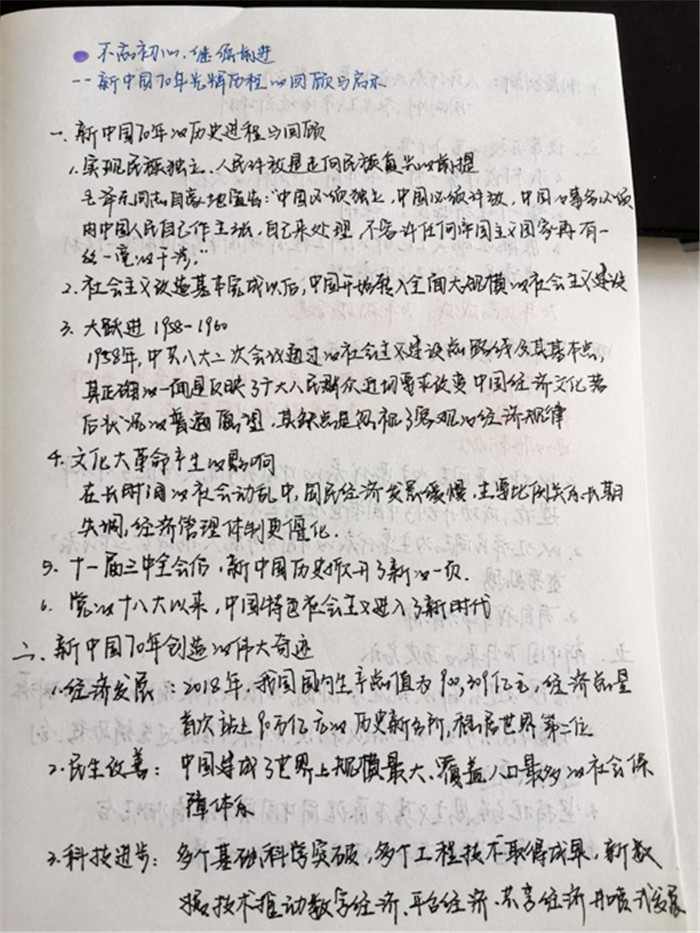 不忘初心、继续前进
--新中国70年光辉历程的回顾与启示
一、新中国70年的历史进程与回顾
1.实现民族独立、人民解放是近向民族复兴的前提
毛泽东同志自豪地宣告:“中国必须独立,中国必须解放,中国的事务必须
由中国人民自己作主张,自己来处理,不容许任何帝国主义国家再有一
丝一毫的干涉。”
2.社会主义改造基本完成以后,中国开始转入全面大规模的社会主义建设
3.大跃进 1958-1960
1958年,中共八大二次会议通过的社会主义建设总路线及其基本点,
其正确的一面是反映了广大人民群众迫切要求改变中国经济文化落
后状况的普遍愿望,其缺点是忽视了客观的经济规律
4.文化大革命产生的影响
在长时间的社会动乱中,国民经济发展缓慢,主要比例关系长期
失调,经济管理体制更僵化.
5.十一届三中全会后,新中国历史掀开了新的一页.
6.党的十八大以来,中国特色社会主义进入了新时代
二、新中国70年创造的伟大奇迹
1.经济发展:2018年,我国国内生产总值为900,309亿元,经济总量
首次站上90万亿元的历史新台阶,稳居世界第二位
2.民生改善:中国建成了世界上规模最大、覆盖人口最多的社会保
障体系
3.科技进步:多个基础科学突破,多个工程技术取得成果,新数
据技术推动数字经济、平台经济、共享经济井喷式发展